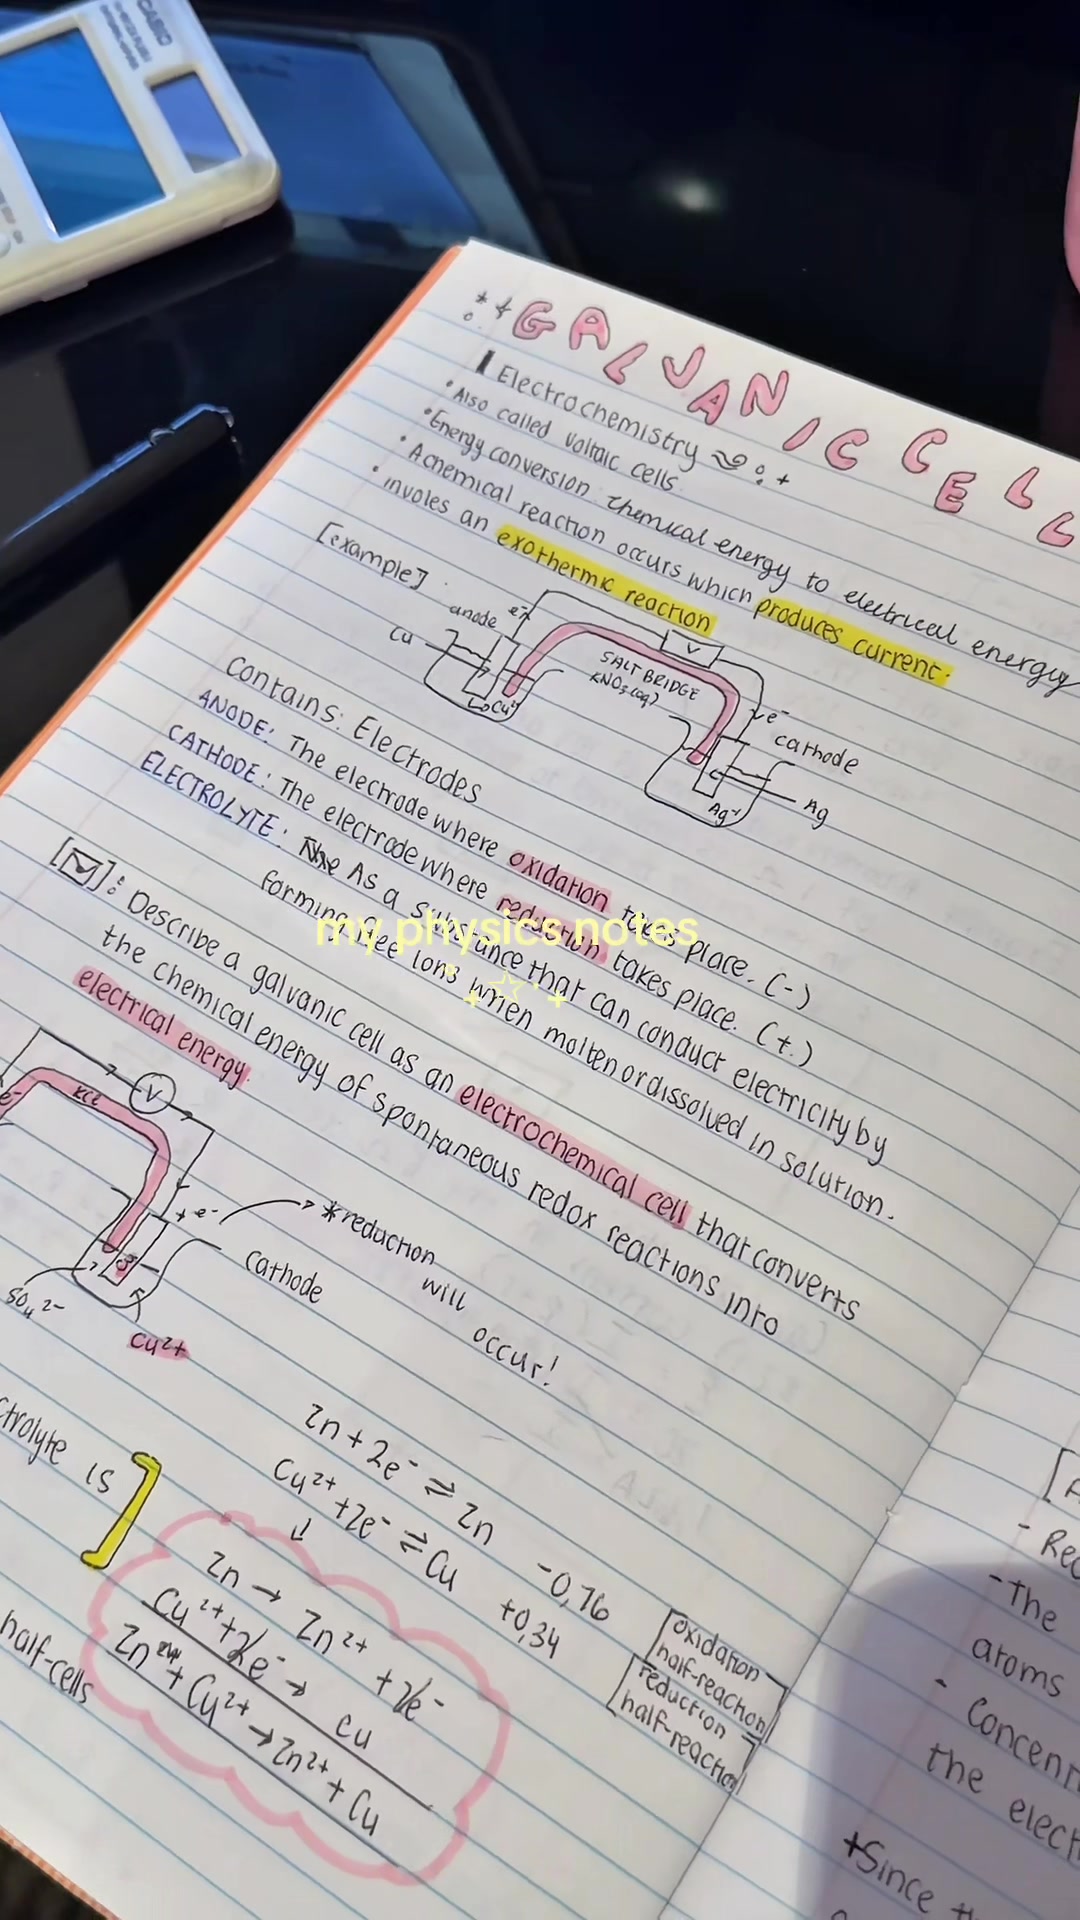 CASIO
GALVANIC CELL
Electrochemistry
• Also called voltaic cells.
• Energy conversion: chemical energy to electrical energy
• A chemical reaction occurs which produces current.
• involes an exothermic reaction
[example]
anode e-
Cu
V
SALT BRIDGE
KNO3(aq)
Cu²⁺
e-
cathode
Ag⁺
Ag
Contains: Electrodes
ANODE: The electrode where oxidation takes place. (-)
CATHODE: The electrode where reduction takes place. (+)
ELECTROLYTE: As a substance that can conduct electricity by
forming free ions when molten or dissolved in solution.
my physics notes
: Describe a galvanic cell as an electrochemical cell that converts
the chemical energy of spontaneous redox reactions into
electrical energy.
e-
KCl
V
+ e-
*reduction
will
occur!
cathode
SO₄²⁻
Cu²⁺
Zn + 2e⁻ ⇌ Zn -0,76
Cu²⁺ + 2e⁻ ⇌ Cu +0,34
↓
Zn → Zn²⁺ + 2e⁻
Cu²⁺ + 2e⁻ → Cu
Zn + Cu²⁺ → Zn²⁺ + Cu
oxidation
half-reaction
reduction
half-reaction
ctrolyte is
half-cells
- The
atoms
- Concent
the elect
+Since